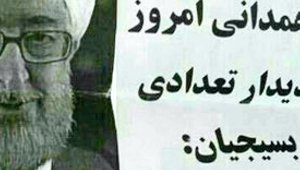 همدانی امروز
دیدار تعدادی
بسیجیان: